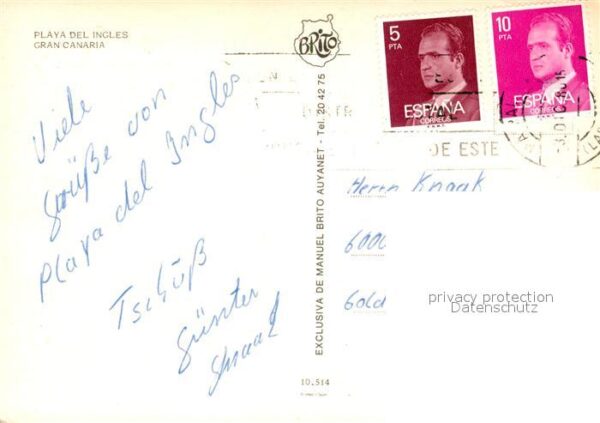 PLAYA DEL INGLES
GRAN CANARIA
BRITO
Viele
Grüße von
Playa del Ingles
Tschüß
Günter
EXCLUSIVA DE MANUEL BRITO AUYANET - Tel. 20 42 75
10.514
5
PTA
ESPAÑA
CORREOS
10
PTA
ESPAÑA
CORREOS
DE ESTE
Herrn Knaak
6000
Gold
privacy protection
Datenschutz